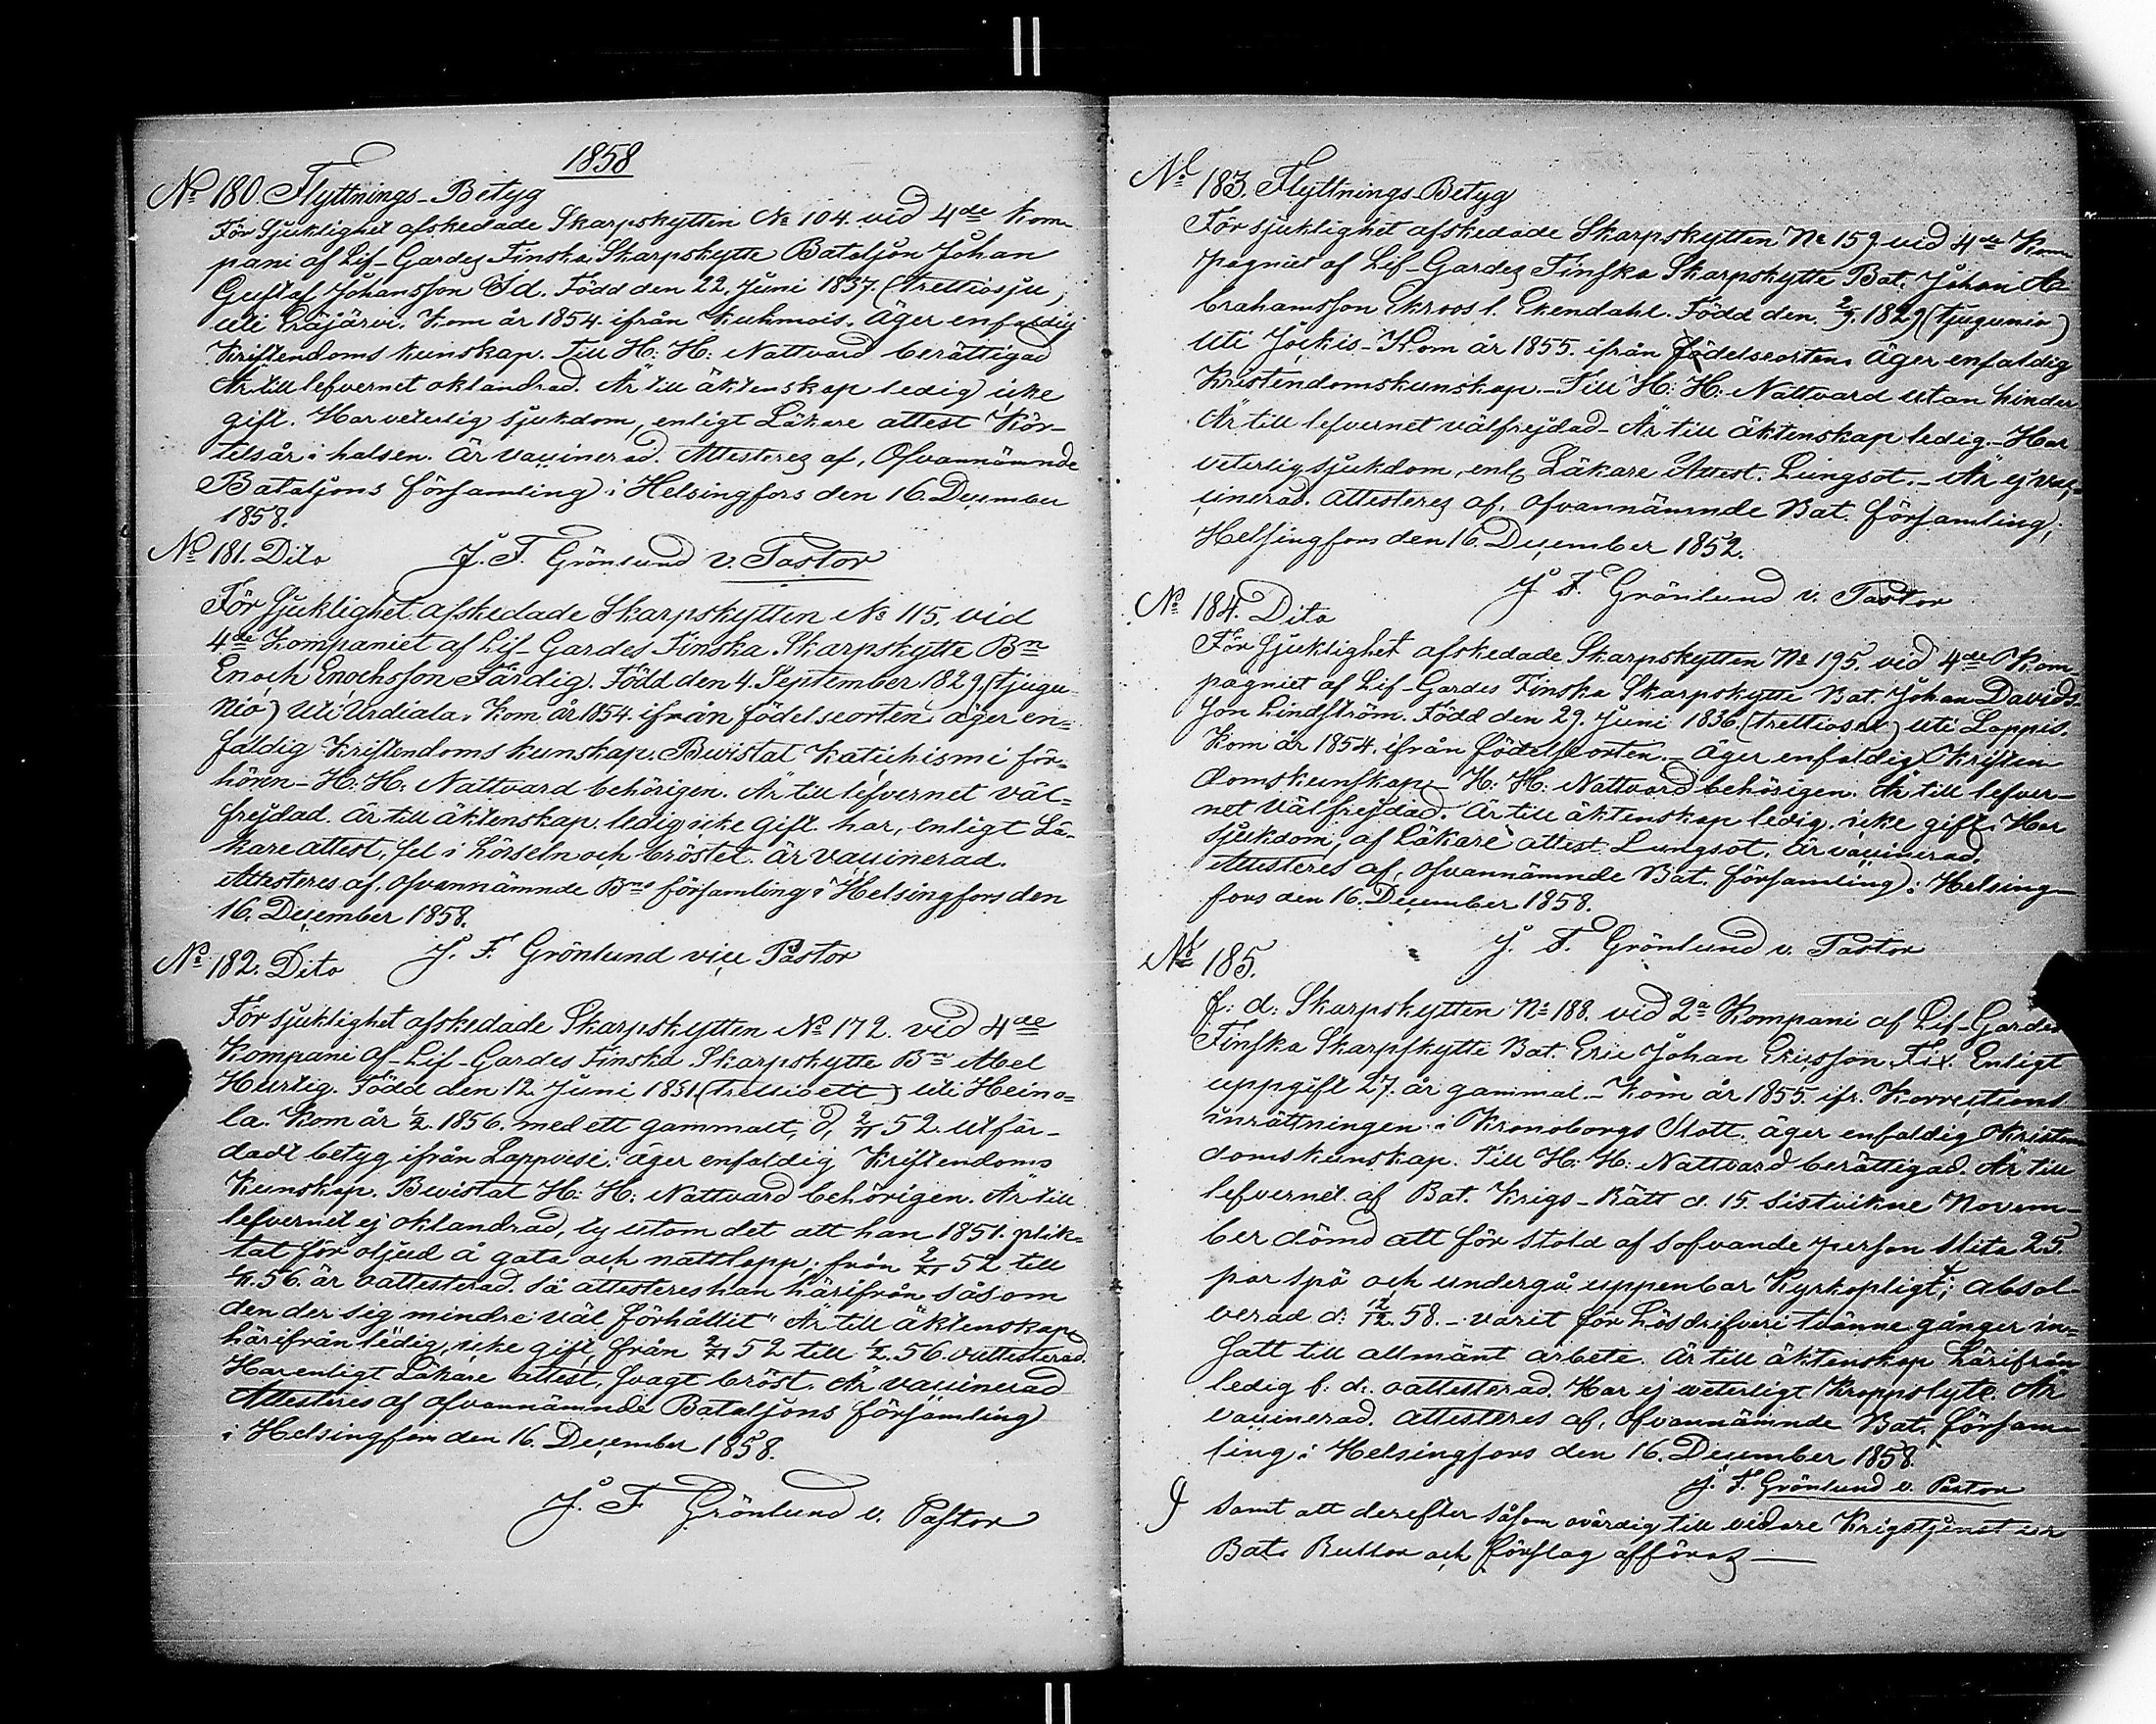 1858
No 180. Flyttnings-Betyg
För Sjuklighet afskedade Skarpskytten No 104. vid 4de Kom-
pani af Lif-Gardes Finska Skarpskytte Bataljon Johan
Gustaf Johansson Id. Född den 22. Juni 1837. (trettiosju)
uti Eräjärvi. Kom år 1854. ifrån Kuhmois. Äger enfaldig
Kristendoms kunskap. Till H: H: Nattvard berättigad
Är till lefvernet oklandrad. Är till äktenskap ledig icke
gift. Har veterlig sjukdom, enligt Läkare attest Kör-
telsår i halsen. Är vaccinerad. Attesteras af, Ofvannämnde
Bataljons församling i Helsingfors den 16. December
1858.
J. F. Grönlund v. Pastor
No 181. Dito
För Sjuklighet afskedade Skarpskytten No 115. vid
4de Kompaniet af Lif-Gardes Finska Skarpskytte Bn
Enoch Enochsson Färdig. Född den 4. September 1829. (tjugu-
nio) uti Urdiala. Kom år 1854. ifrån födelseorten äger en=
faldig Kristendoms kunskap. Bevistat Katichismi för=
hören - H: H: Nattvard behörigen. Är till lefvernet väl=
frejdad. Är till äktenskap ledig icke gift har, enligt Lä-
kare attest, fel i hörseln och bröstet. är vaccinerad.
Attesteres af, ofvannämnde Bns församling i Helsingfors den
16. December 1858.
J. F. Grönlund vice Pastor
No 182. Dito
För sjuklighet afskedade Skarpskytten No 172. vid 4de
Kompani af Lif-Gardes Finska Skarpskytte Bn Abel
Hurtig. Född den 12 Juni 1831. (trettioett) uti Heino=
la. Kom år 1/2. 1856. med ett gammalt, d, 2/11 52. utfär-
dadt betyg ifrån Lappvesi: äger enfaldig Kristendoms
Kunskap. Bevistat H: H: Nattvard behörigen. Är till
lefvernet ej oklandrad, ty utom det att han 1851. plik=
tat för oljud å gata och nattlopp; från 2/11 52 till
1/2. 56. är oattesterad. Så attesteres han härifrån såsom
den der sig mindre väl förhållit" Är till äktenskap
härifrån ledig, icke gift, från 2/11 52 till 1/2. 56 oattesterad.
Har enligt Läkare attest, svagt bröst. Är vaccinerad
Attesteres af ofvannämnde Bataljons församling
i Helsingfors den 16. December 1858.
J. F Grönlund v. Pastor
No 183. Flyttnings-Betyg
För sjuklighet afskedade Skarpskytten No 159 vid 4de Kom
pagniet af Lif-Gardes Finska Skarpskytte Bat. Johan A
brahamsson Ekroos l. Ekendahl. Född den 2/9. 1829 (tjugunio)
uti Jockis - Kom år 1855. ifrån födelseorten. äger enfaldig
Kristendomskunskap. - Till H: H: Nattvard utan hinder
Är till lefvernet välfrejdad - Är till äktenskap ledig. - Har
veterlig sjukdom, enl Läkare Attest. Lungsot. - Är ej vac-
cinerad. Attesteres af, ofvannämnde Bat. församling;
Helsingfors den 16. December 1852.
J. F. Grönlund v. Pastor
No 184. Dito
För Sjuklighet afskedade Skarpskytten No 195. vid 4de Kom
pagniet af Lif-Gardes Finska Skarpskytte Bat. Johan Davids
son Lindström. Född den 29. Juni 1836 (trettiosex) uti Loppis.
Kom år 1854. ifrån födelseorten. - äger enfaldig Kristen
domskunskap - H: H: Nattvard behörigen. Är till lefver-
net Välfrejdad. Är till äktenskap ledig. icke gift. Har
sjukdom, af Läkare attest Lungsot. är vaccinerad.
Attesteres af, ofvannämnde Bat. församling i Helsing-
fors den 16. December 1858.
J. F. Grönlund v. Pastor
No 185.
f: d: Skarpskytten No 188. vid 2a Kompani af Lif-Gardes
Finska Skarpskytte Bat. Eric Johan Ericsson Fix. Enligt
uppgift 27. år gammal. - Kom år 1855. ifr. Korrections
inrättningen i Kronoborgs Slott. äger enfaldig Kristen
domskunskap. Till H: H: Nattvard berättigad. Är till
lefvernet af Bat. Krigs-Rätt d. 15. sistvikne Novem-
ber dömd att för stöld af sofvande person slita 25.
par spö och undergå uppenbar Kyrkopligt; absol-
verad d: 12/12. 58. - varit för Lösdrifveri tvänne gånger in=
satt till allmänt arbete. Är till äktenskap härifrån
ledig f: d: oattesterad. Har ej veterligt Kroppslyte. Är
vaccinerad. Attesteres af, ofvannämnde Bat. församl
ling i Helsingfors den 16. December 1858.
J. F. Grönlund v. Pastor
samt att derefter såsom ovärdig till vidare Krigstjenst ur
Bat. Rullor och förslag afföras —